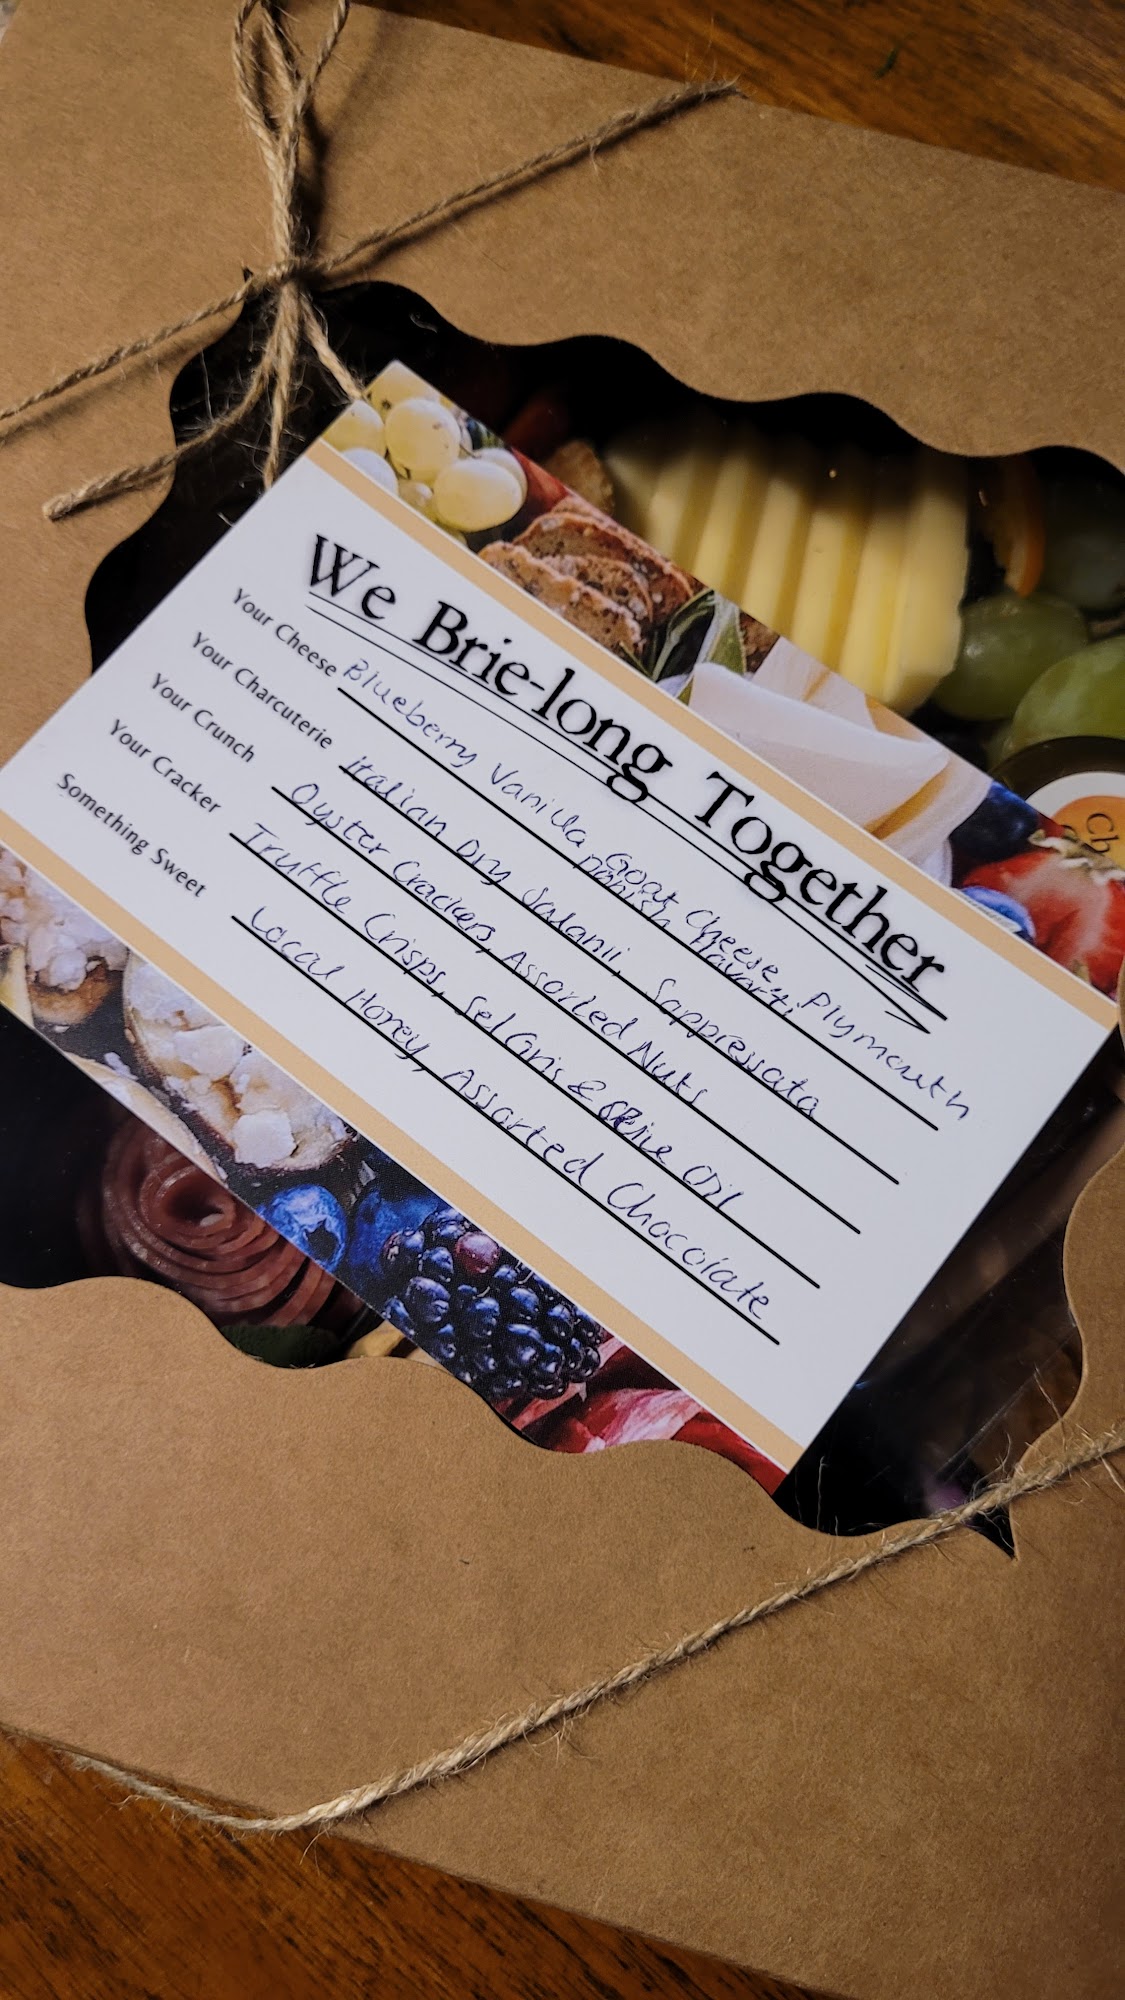 We Brie-long Together
Your Cheese Blueberry Vanilla Goat Cheese, Plymouth
Danish Havarti
Your Charcuterie Italian Dry Salami, Soppressata
Your Crunch Oyster Crackers, Assorted Nuts
Your Cracker Truffle Crisps, Sel Gris & Olive Oil
Something Sweet Local Honey, Assorted Chocolate
Ch